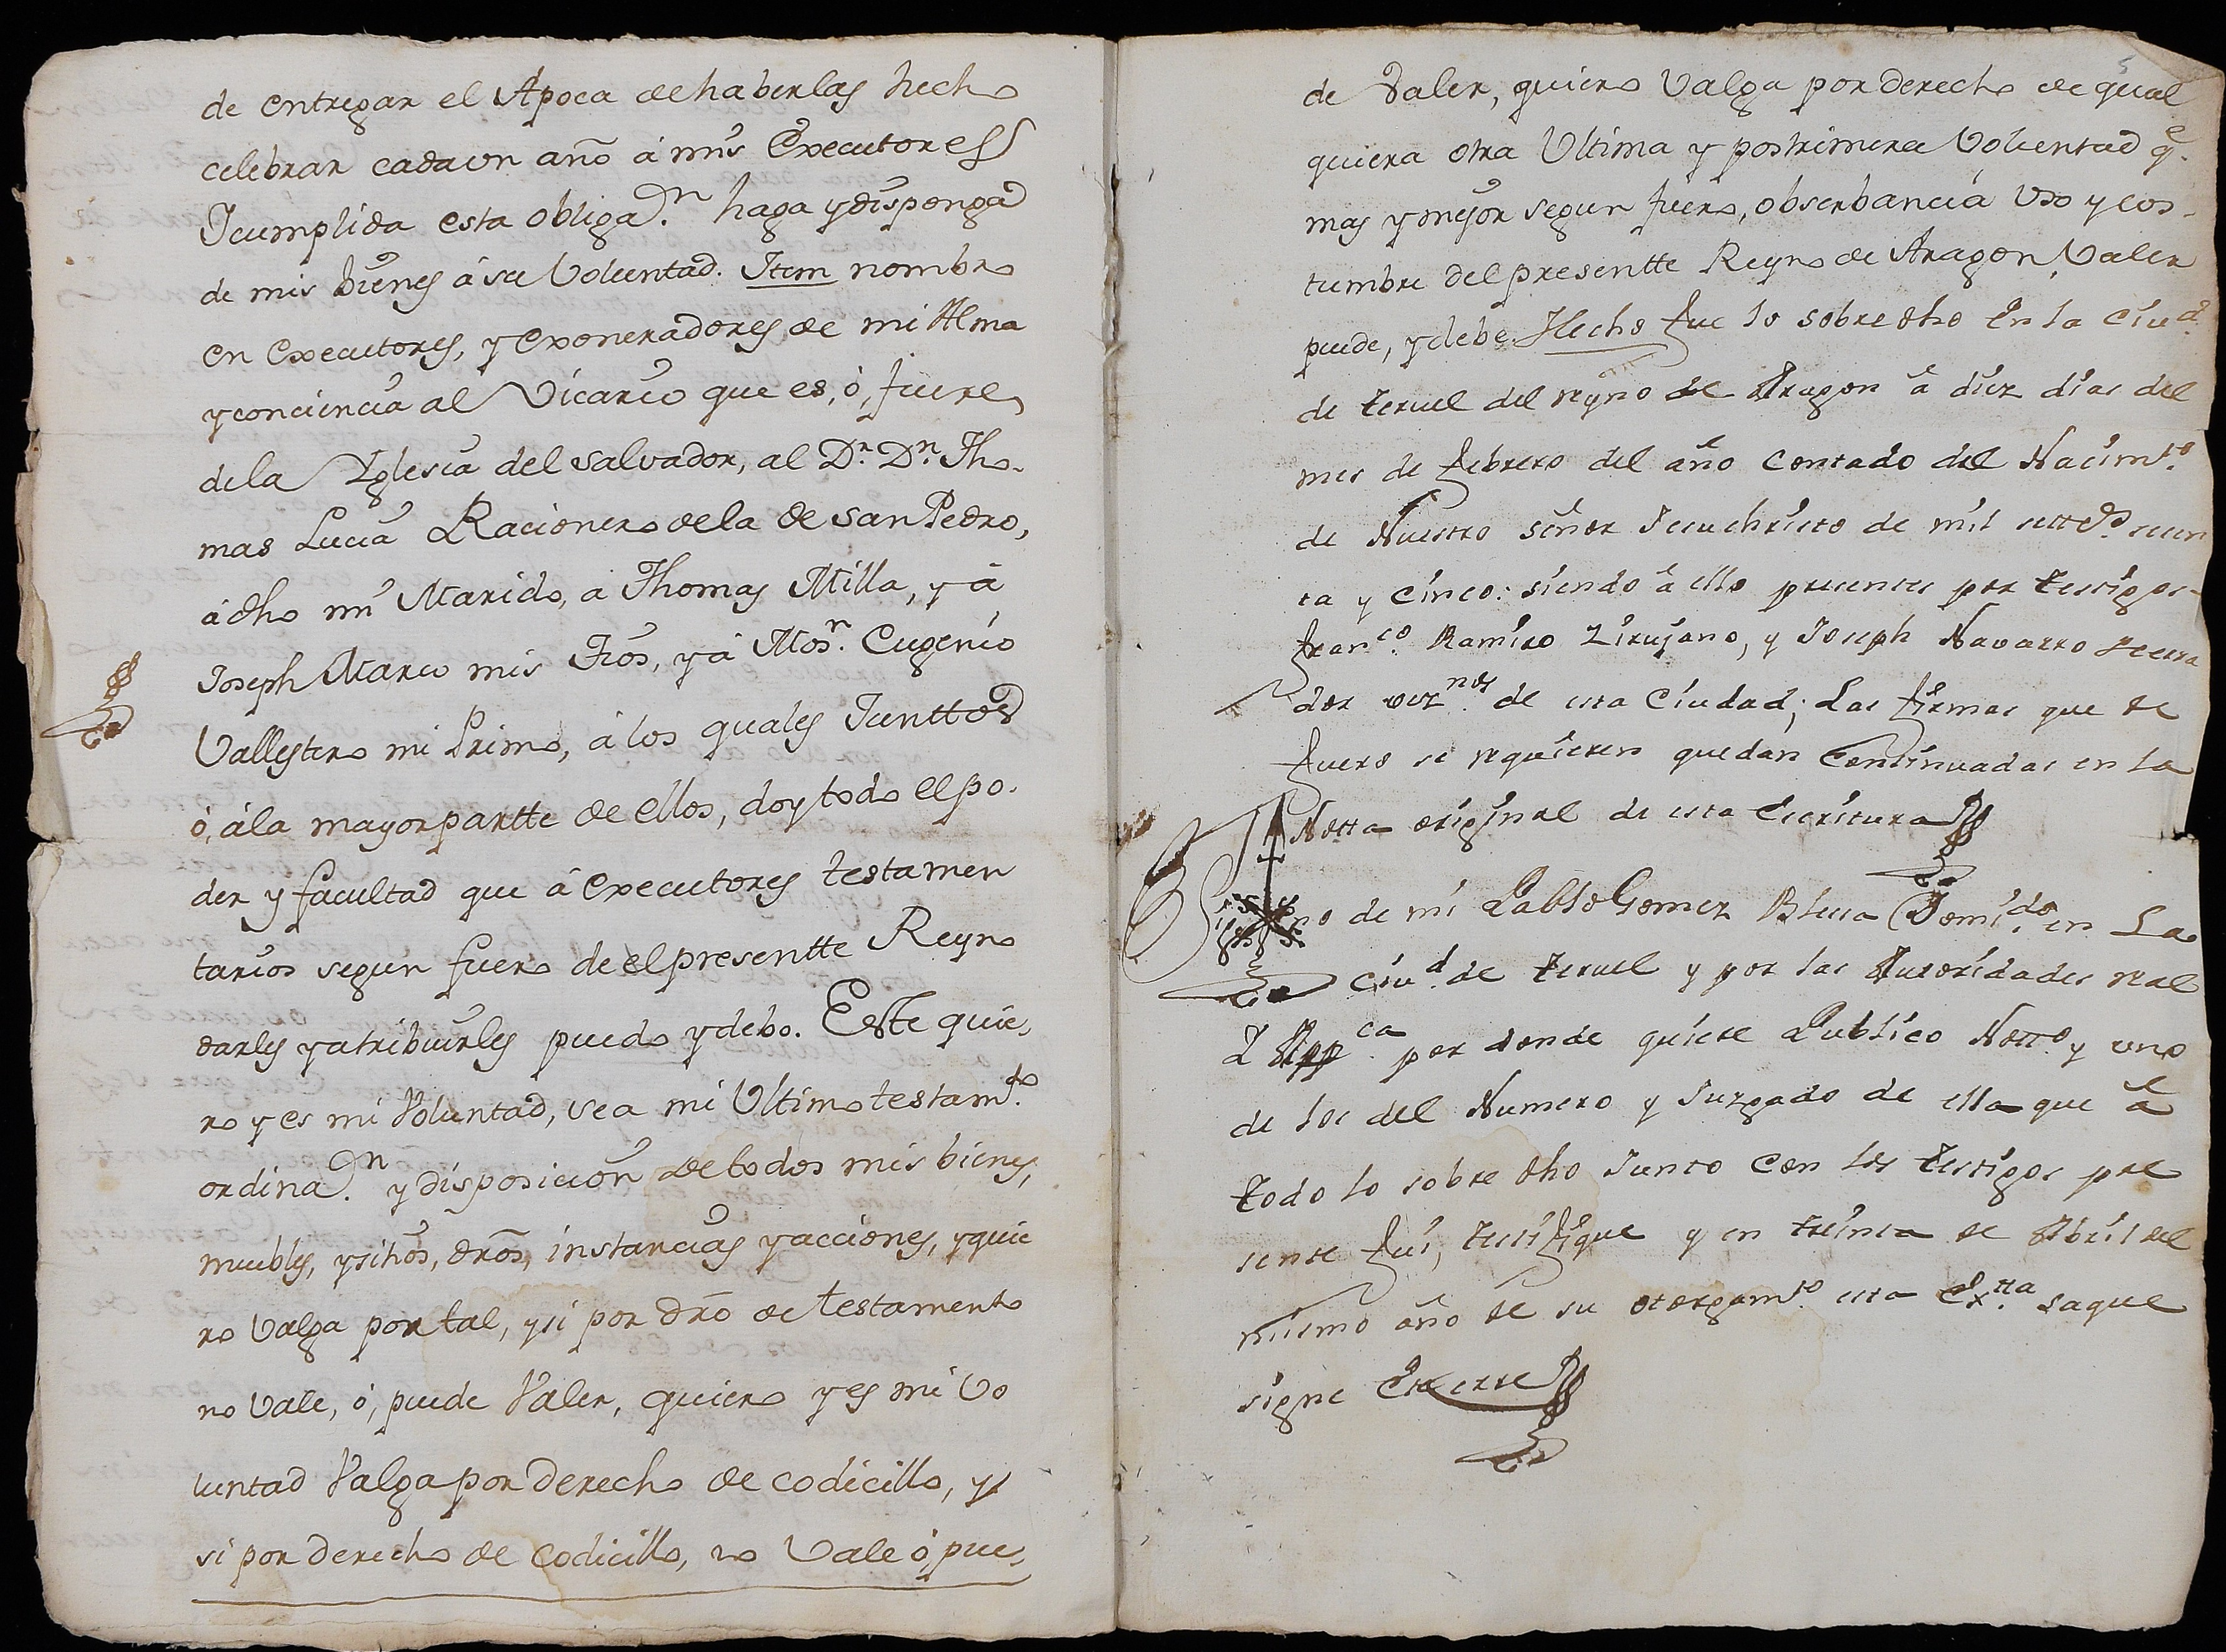 de entregar el Apoca de haberlas hecho
celebrar cada un año á mis Executores
Y cumplida esta obligaon. haga y disponga
de mis bienes á su Voluntad. Item nombro
en executores, y exoneradores de mi Alma
y conciencia al Vicario que es, ó, fuere
de la Yglesia del salvador, al Dr. Dn. Tho-
mas Lucia Racionero de la de san Pedro,
á dho mi Marido, a Thomas Milla, y á
Joseph Marco mis Tios, y á Mosn. Eugenio
Vallestero mi Primo, á los quales Junttos
ó, á la mayor partte de ellos, doy todo el po-
der y facultad que á executores testamen
tarios segun fuero de el presentte Reyno
darles y atribuirles puedo y debo. Este quie-
ro y es mi Voluntad, sea mi Ultimo testamto.
ordinaon. y disposicion de todos mis bienes,
muebles, y sitios, dros, instancias y acciones, y quie
ro Valga por tal, y si por dro de testamento
no Vale, ó, puede Valer, quiero y es mi Vo
luntad Valga por derecho de codicillo, y
si por derecho de codicillo, no Vale ó, pue-
5
de Valer, quiero Valga por derecho de qual
quiera otra Ultima y postrimera Voluntad q̃.
mas y mejor segun fuero, obserbancia Uso y cos-
tumbre del presentte Reyno de Aragon, Valer
puede, y debe. Hecho fue lo sobre dho en la Ciud.
de teruel del reyno de Aragon á diez dias del
mes de febrero del año contado del Nacimto.
de Nuestro señor Jesuchristo de mil setteos. seten
ta y cinco: siendo á ello presentes por testigos
franco. Ramiro Zirujano, y Joseph Navarro
dor veznos. de esta Ciudad; Las firmas que de
fuero se requieren quedan Continuadas en la
Notta original de esta Escritura
Sig no de mi Pablo Gomez Blesa Domido. en La
Ciud. de teruel y por las Autoridades real
Y Appca. por donde quiere Publico Notto. y uno
de los del Numero y Juzgado de ella que á
todo lo sobre dho Junto con los testigos pre
sente fui, testifique y en treinta de Abril del
mismo año de su otorgamto. esta Extta. saque
signe Et cerre